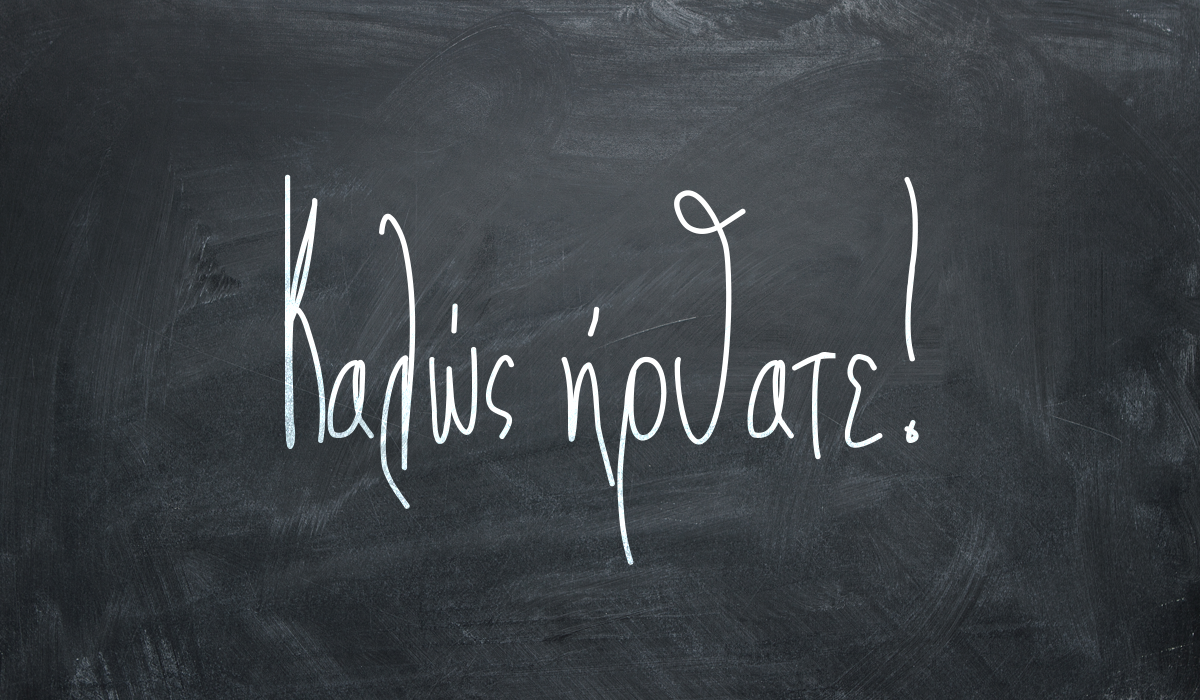 Καλώς ήρθατε!